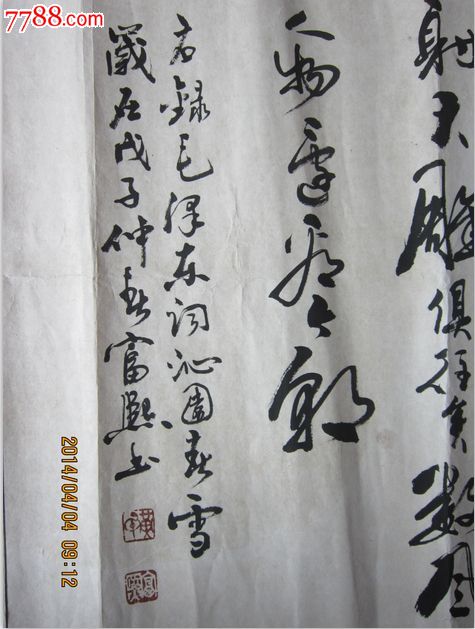 7788.com
射大雕俱往矣数风
人物还看今朝
右録毛泽东词沁園春雪
歲在戊子仲春富熙书
2014/04/04 09:12